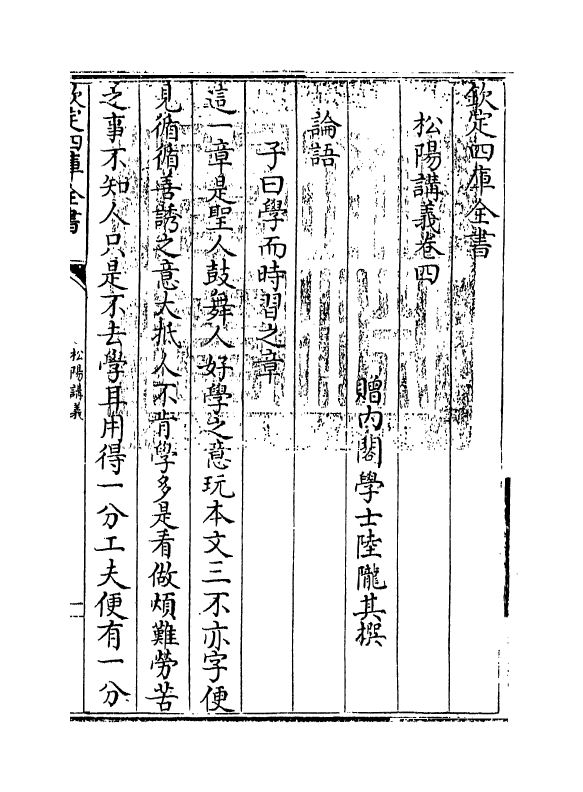 欽定四庫全書
松陽講義卷四
贈內閣學士陸隴其撰
論語
子曰學而時習之章
這一章是聖人鼓舞人好學之意玩本文三不亦字便
見循循善誘之意大抵人不肯學多是看做煩難勞苦
之事不知人只是不去學耳用得一分工夫便有一分
欽定四庫全書
松陽講義
一